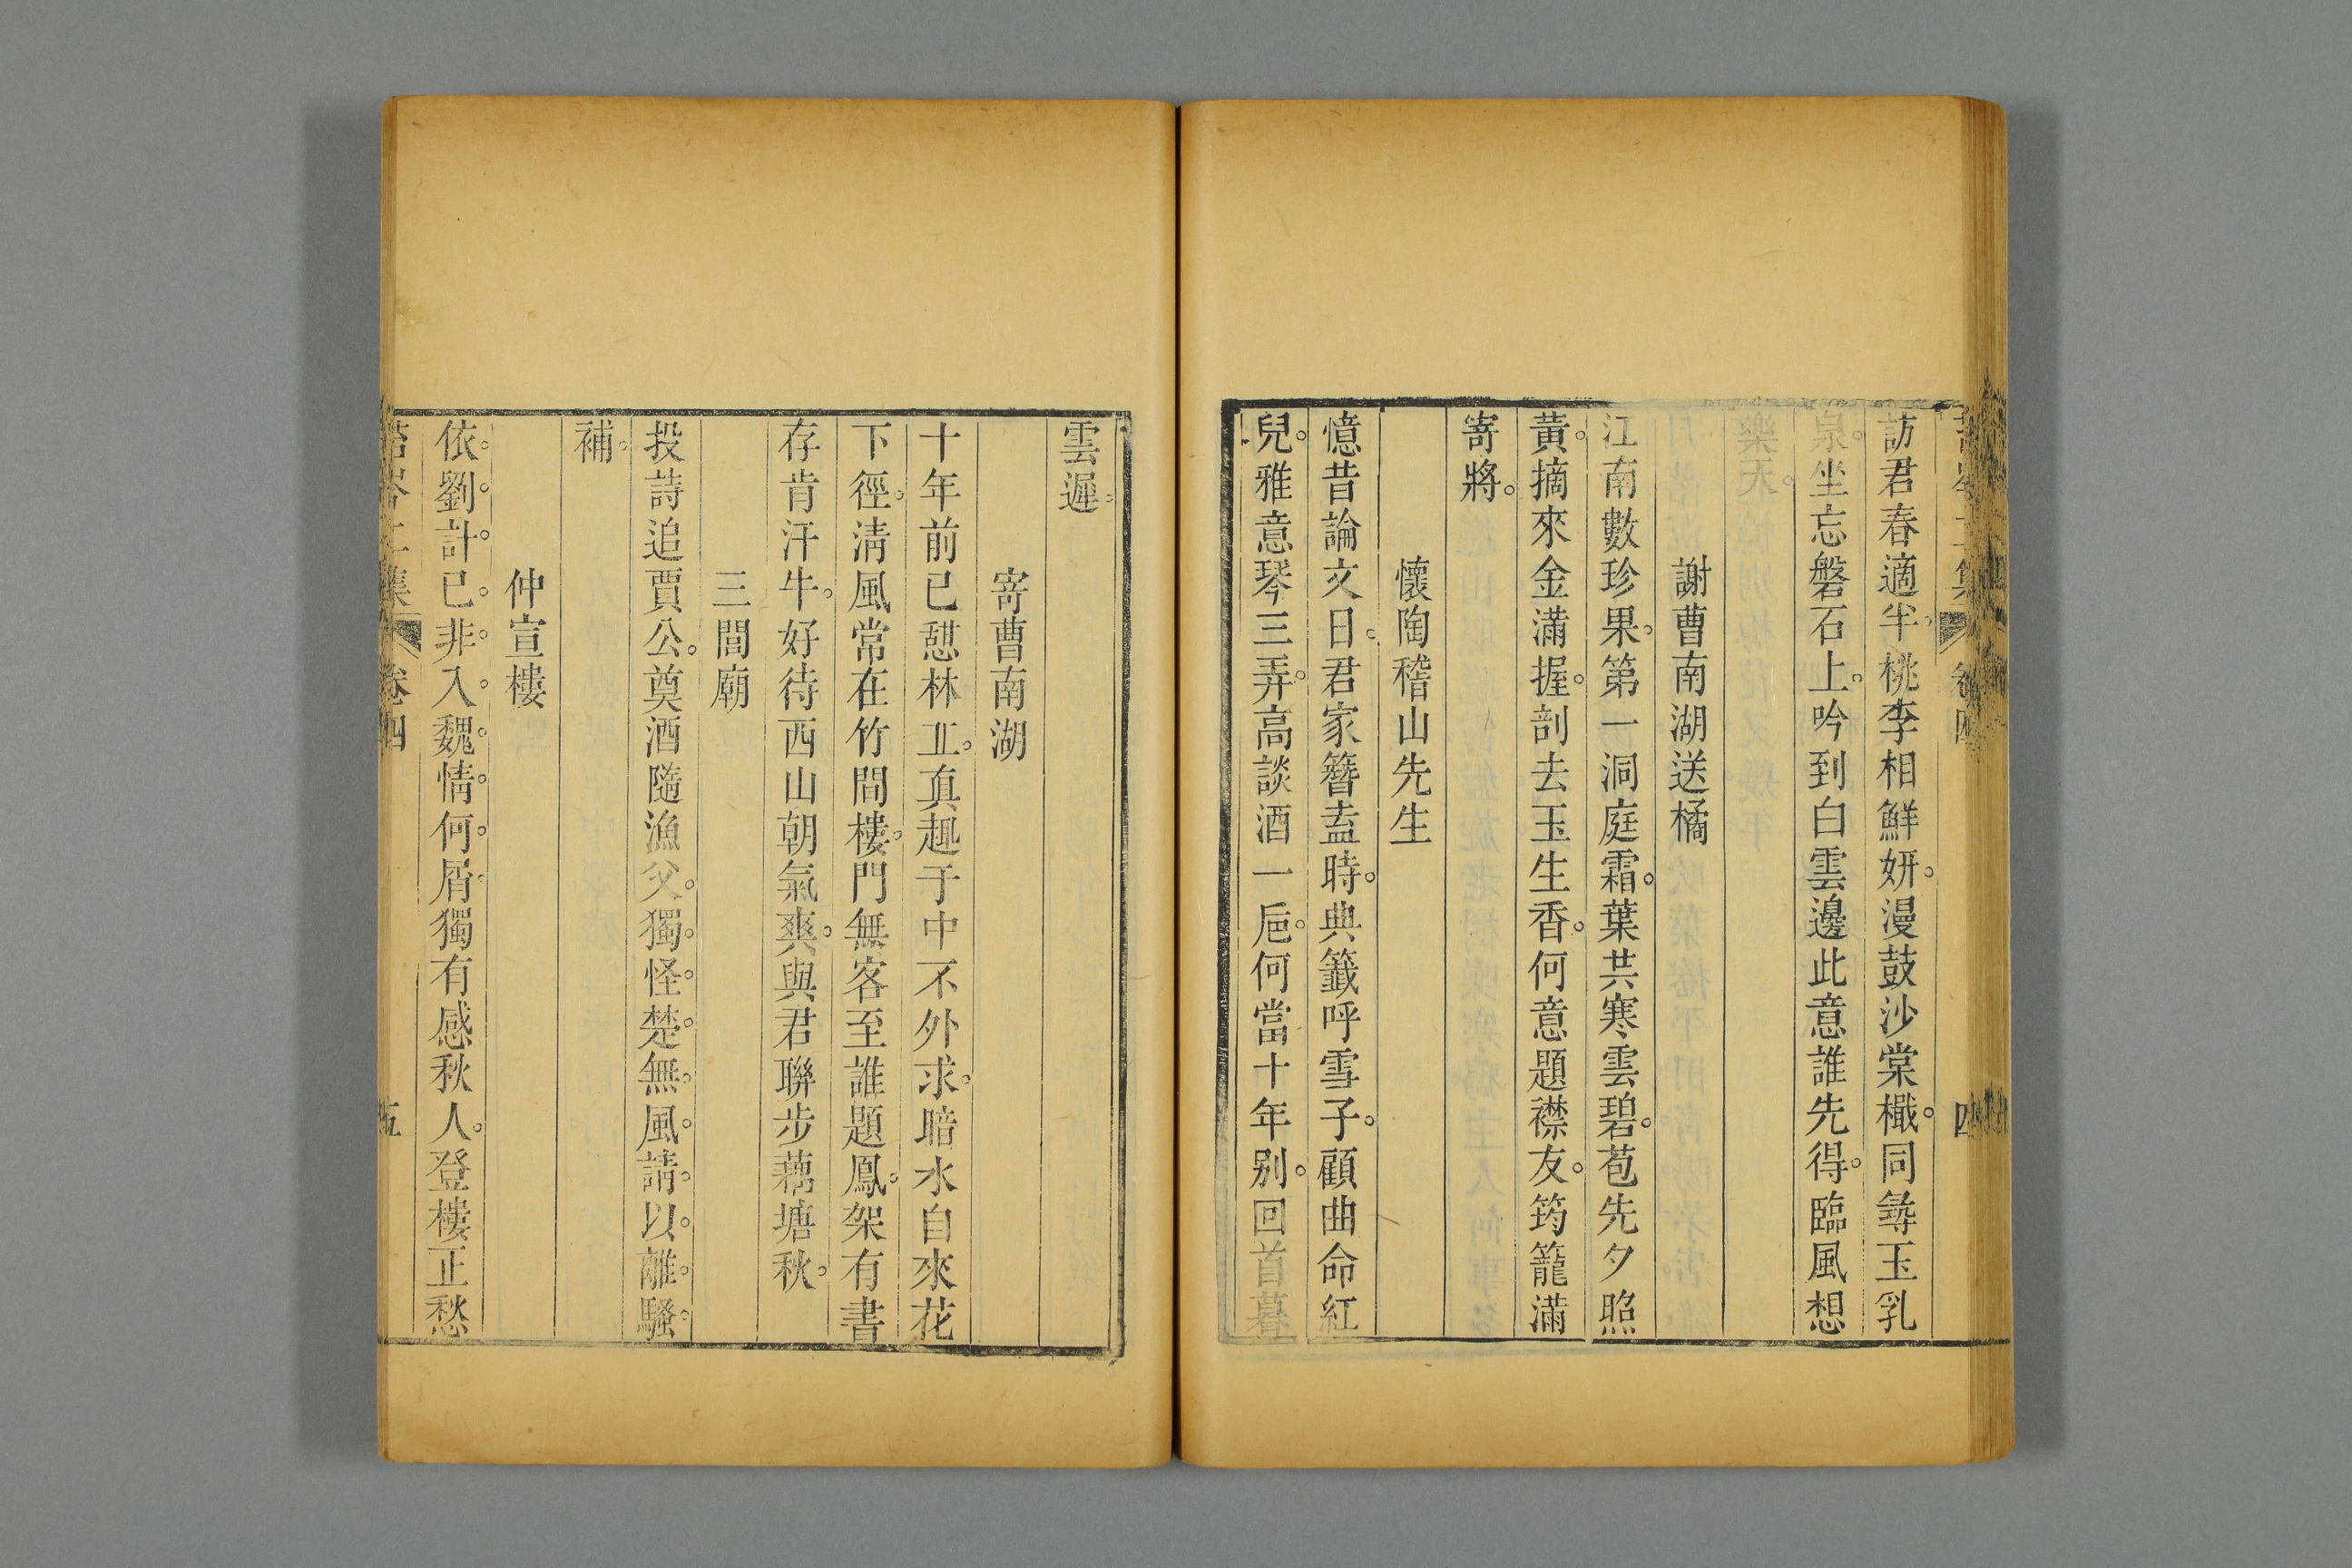 訪君春適半桃李相鮮妍漫鼓沙棠檝同尋玉乳
泉坐忘磐石上吟到白雲邊此意誰先得臨風想
樂天
謝曹南湖送橘
江南數珍果第一洞庭霜葉共寒雲碧苞先夕照
黃摘來金滿握剖去玉生香何意題襟友筠籠滿
寄將
懷陶稽山先生
憶昔論文日君家簪盍時典籤呼雪子顧曲命紅
兒雅意琴三弄高談酒一巵何當十年别回首暮
卷四
四
雲遲
寄曹南湖
十年前已憇林丘真趣于中不外求暗水自來花
下徑清風常在竹間樓門無客至誰題鳳架有書
存肯汗牛好待西山朝氣爽與君聯步藕塘秋
三閭廟
投詩追賈公奠酒隨漁父獨怪楚無風請以離騷
補
仲宣樓
依劉計已非入魏情何屑獨有感秋人登樓正愁
集
卷四
五